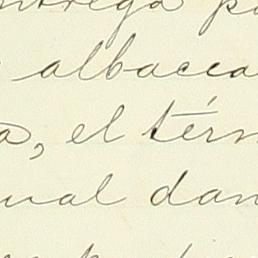 ntrega p
albacea
a, el térm
ual dan